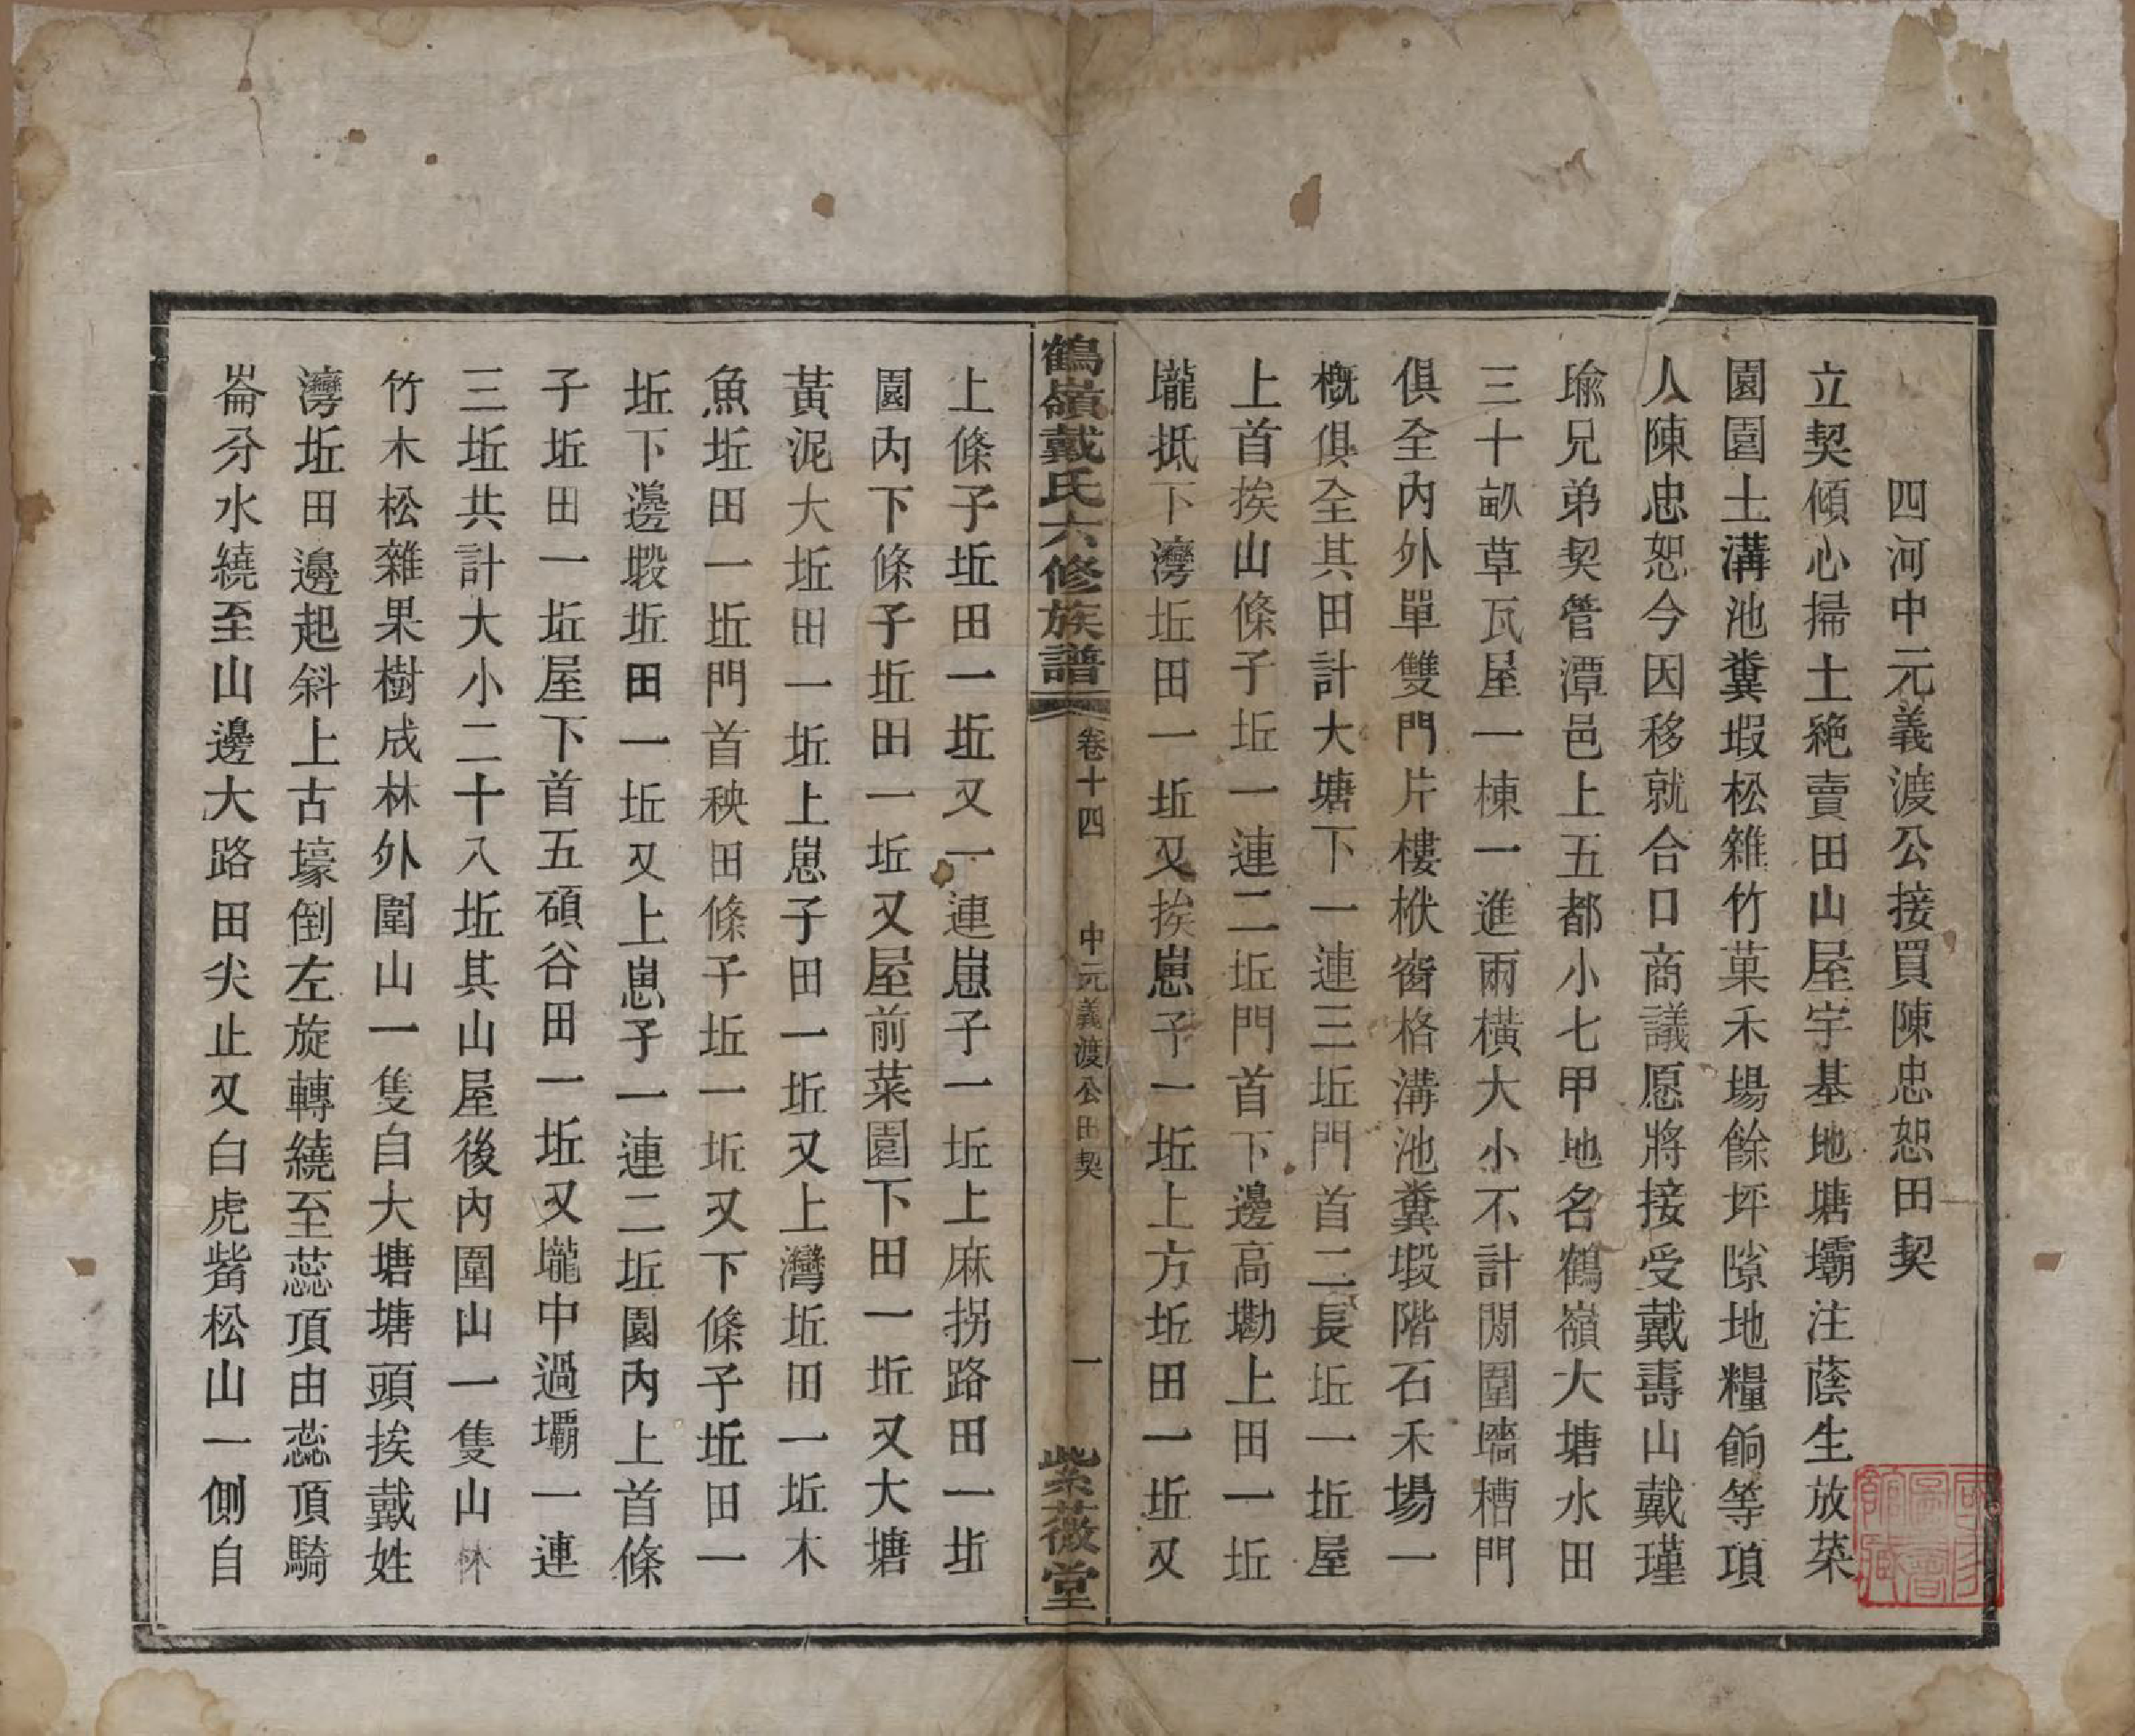 四河中元義渡公接買陳忠恕田契
立契傾心掃土絶賣田山屋宇基地塘壩注蔭生放菜
園園土溝池糞塅松雜竹菓禾場餘坪隙地糧餉等項
人陳忠恕今因移就合口商議愿將接受戴壽山戴瑾
瑜兄弟契管潭邑上五都小七甲地名鶴嶺大塘水田
三十畝草瓦屋一棟一進兩横大小不計閒圍墻槽門
俱全内外單雙門片樓栿窗格溝池糞塅階石禾場一
槪俱全其田計大塘下一連三坵門首二長坵一坵屋
上首挨山條子坵一連二坵門首下邊高勘上田一坵
壠抵下灣坵田一坵又挨崽子一坵上方坵田一坵又
鶴嶺戴氏六修族譜 卷十四 中元義渡公田契 一 紫薇堂
上條子坵田一坵又一連崽子一坵上麻拐路田一坵
園内下條子坵田一坵又屋前菜園下田一坵又大塘
黃泥大坵田一坵上崽子田一坵又上灣坵田一坵木
魚坵田一坵門首秧田條子坵一坵又下條子坵田一
坵下邊塅坵田一坵又上崽子一連二坵園内上首條
子坵田一坵屋下首五碩谷田一坵又壠中過壩一連
三坵共計大小二十入坵其山屋後内圍山一隻山林
竹木松雜果樹成林外圍山一隻自大塘塘頭挨戴姓
灣坵田邊起斜上古壕倒左旋轉繞至蕊頂由蕊頂騎
崙分水繞至山邊大路田尖止又白虎嘴松山一側自
國家圖書館藏